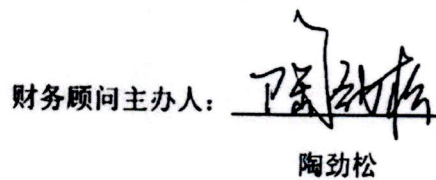 财务顾问主办人： 陶劲松
陶劲松